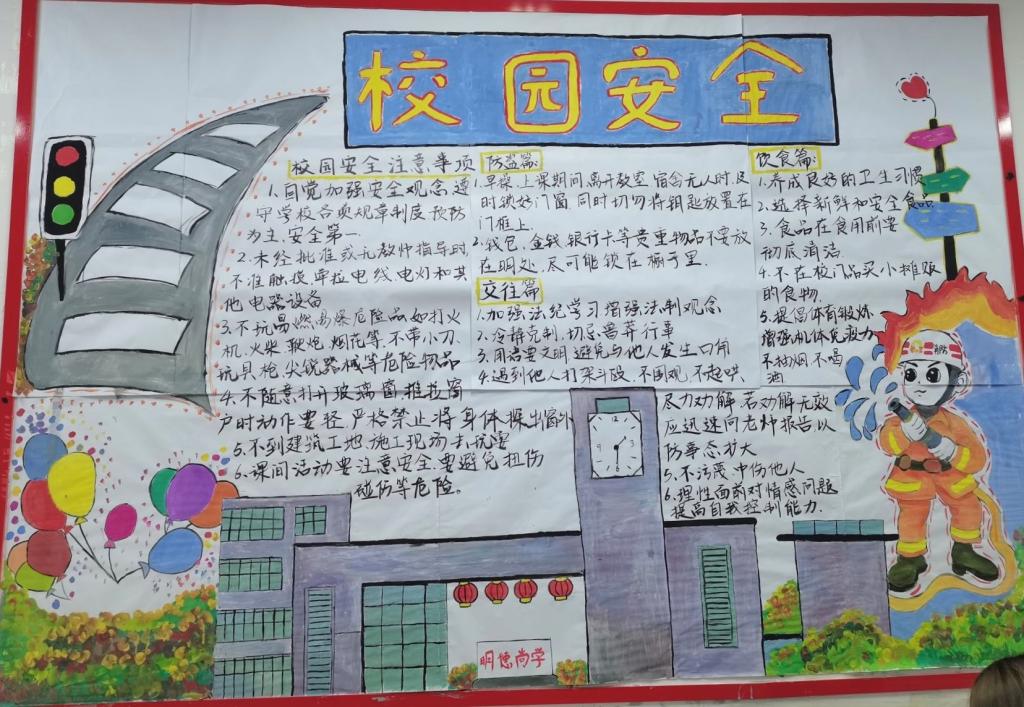 校园安全
校园安全注意事项
1.自觉加强安全观念,遵
守学校各项规章制度,预防
为主,安全第一
2.未经批准或无教师指导时,
不准触摸、牵拉电线、电灯和其
他电器设备
3.不玩易燃、易爆危险品,如打火
机、火柴、鞭炮、烟花等,不带小刀、
玩具枪、尖锐器械等危险物品
4.不随意打开玻璃窗,推拉窗
户时动作要轻,严格禁止将身体探出窗外
5.不到建筑工地、施工现场去玩耍
6.课间活动要注意安全,要避免扭伤
碰伤等危险。
防盗篇:
1.早操、上课期间,离开教室、宿舍无人时,及
时锁好门窗,同时切勿将钥匙放置在
门框上.
2.钱包、金钱、银行卡等贵重物品不要放
在明处,尽可能锁在橱子里.
交往篇
1.加强法纪学习,增强法制观念
2.冷静克制,切忌鲁莽行事
3.用语要文明,避免与他人发生口角
4.遇到他人打架斗殴,不围观,不起哄,
尽力劝解,若劝解无效
应迅速向老师报告,以
防事态扩大
5.不污蔑、中伤他人
6.理性面对情感问题
提高自我控制能力.
饮食篇:
1.养成良好的卫生习惯
2.选择新鲜和安全食品
3.食品在食用前要
彻底清洁.
4.不在校门品买小摊贩
的食物.
5.提倡体育锻炼
增强机体免疫力
不抽烟,不喝
酒
明德尚学